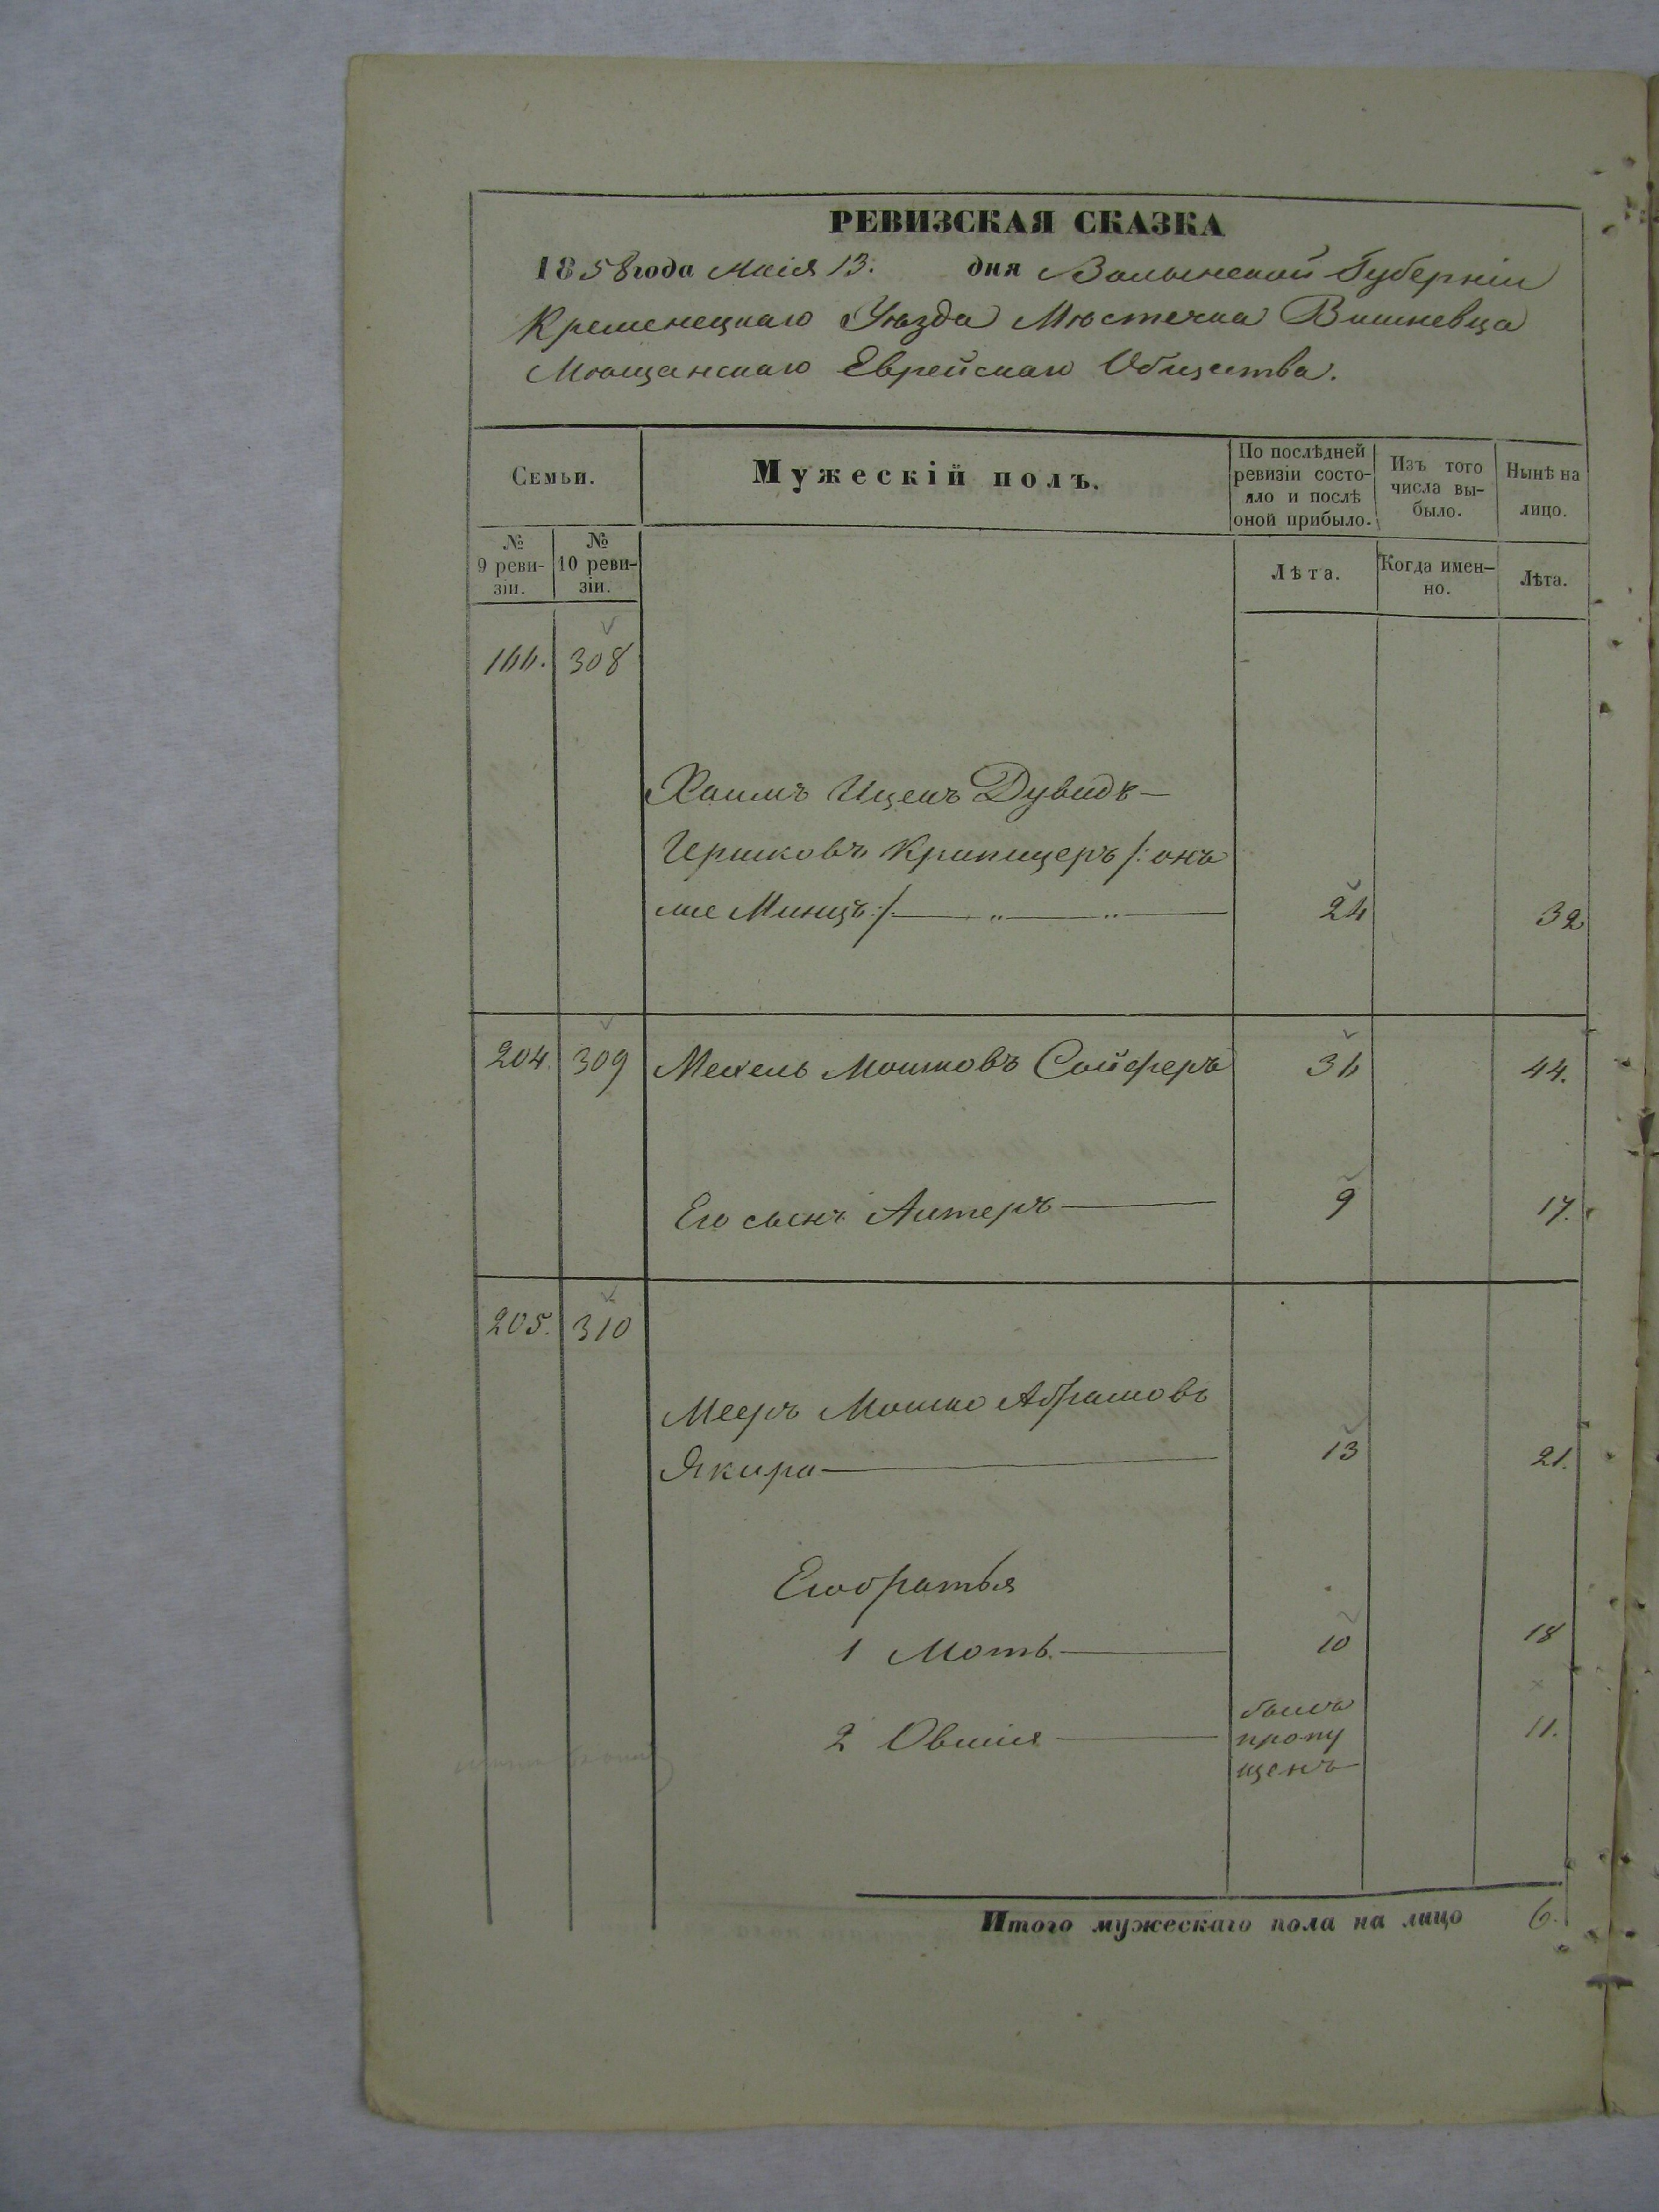 РЕВИЗСКАЯ СКАЗКА
1858 года Маія 13. дня Волынской Губерніи
Кременецкаго Уѣзда Мѣстечка Вишневца
Мѣщанскаго Еврейскаго Общества.
Семьи.
Мужескій полъ.
По послѣдней ревизіи состо-
яло и послѣ оной прибыло.
Изъ того числа вы-
было.
Нынѣ на лицо.
№ 9 реви-
зіи.
№ 10 реви-
зіи.
Лѣта.
Когда имен-
но.
Лѣта.
166. 308
Хаимъ Ицекъ Дувидъ-
Гершковъ Крипицеръ /: онъ
же Минцъ :/ 24 32
204. 309 Мехель Мошковъ Сойферъ 36 44.
Его сынъ Алтеръ 9 17.
205. 310
Мееръ Мошко Абрамовъ
Якира 13 21.
Его братья
1 Моть 10 18
2 Овшія былъ
пропу
щенъ 11.
Итого мужескаго пола на лицо 6.